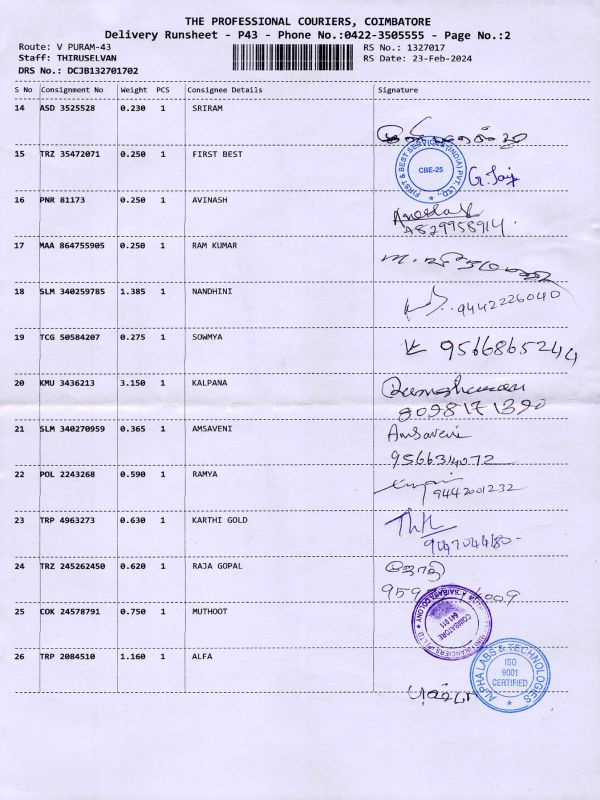 THE PROFESSIONAL COURIERS, COIMBATORE
Delivery Runsheet - P43 - Phone No.:0422-3505555 - Page No.:2
Route: V PURAM-43 RS No.: 1327017
Staff: THIRUSELVAN RS Date: 23-Feb-2024
DRS No.: DCJB132701702
S No Consignment No Weight PCS Consignee Details Signature
14 ASD 3525528 0.230 1 SRIRAM
15 TRZ 35472071 0.250 1 FIRST BEST
FIRST & BEST SERVICES (INDIA) PVT. LTD. CBE-25
G. Jaji
16 PNR 81173 0.250 1 AVINASH
17 MAA 864755905 0.250 1 RAM KUMAR
18 SLM 340259785 1.385 1 NANDHINI
9442226040
19 TCG 50584207 0.275 1 SOWMYA
9566865244
20 KMU 3436213 3.150 1 KALPANA
8098171390
21 SLM 340270959 0.365 1 AMSAVENI
Amsaveni
9566314072
22 POL 2243268 0.590 1 RAMYA
9442001232
23 TRP 4963273 0.630 1 KARTHI GOLD
24 TRZ 245262450 0.620 1 RAJA GOPAL
ஜோதி
959
25 COK 24578791 0.750 1 MUTHOOT
COIMBATORE
641 011
26 TRP 2084510 1.160 1 ALFA
ALPHA LABS & TECHNOLOGIES
ISO
9001
CERTIFIED